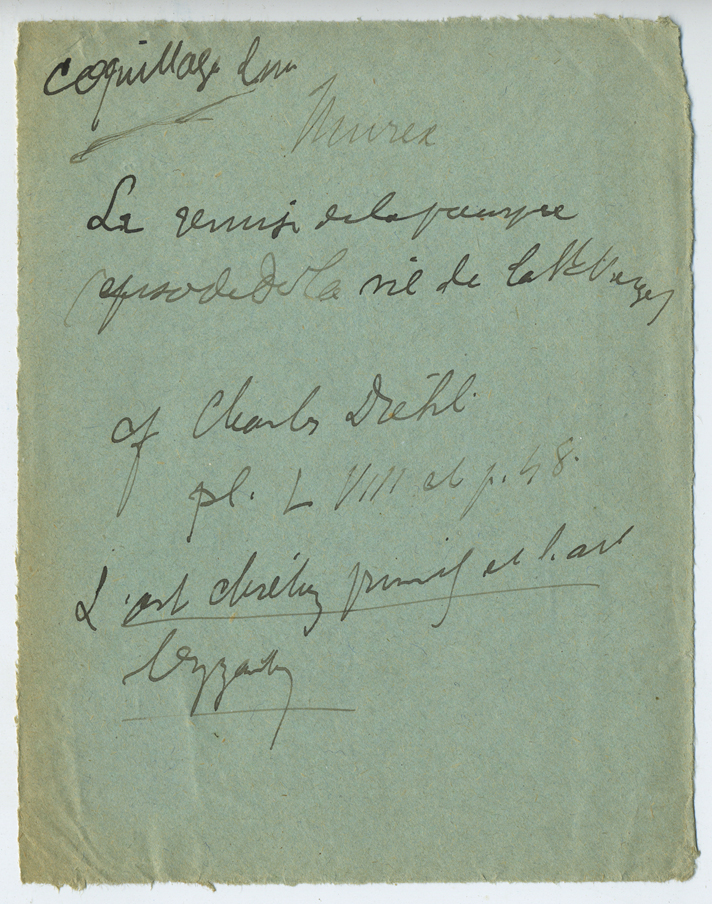 coquillage d'un
Murex
La remise de la pourpre
épisode de la vie de la Ste Vierge
cf Charles Diehl
pl. L VIII et p. 48.
L'art chrétien primitif et l'art
byzantin